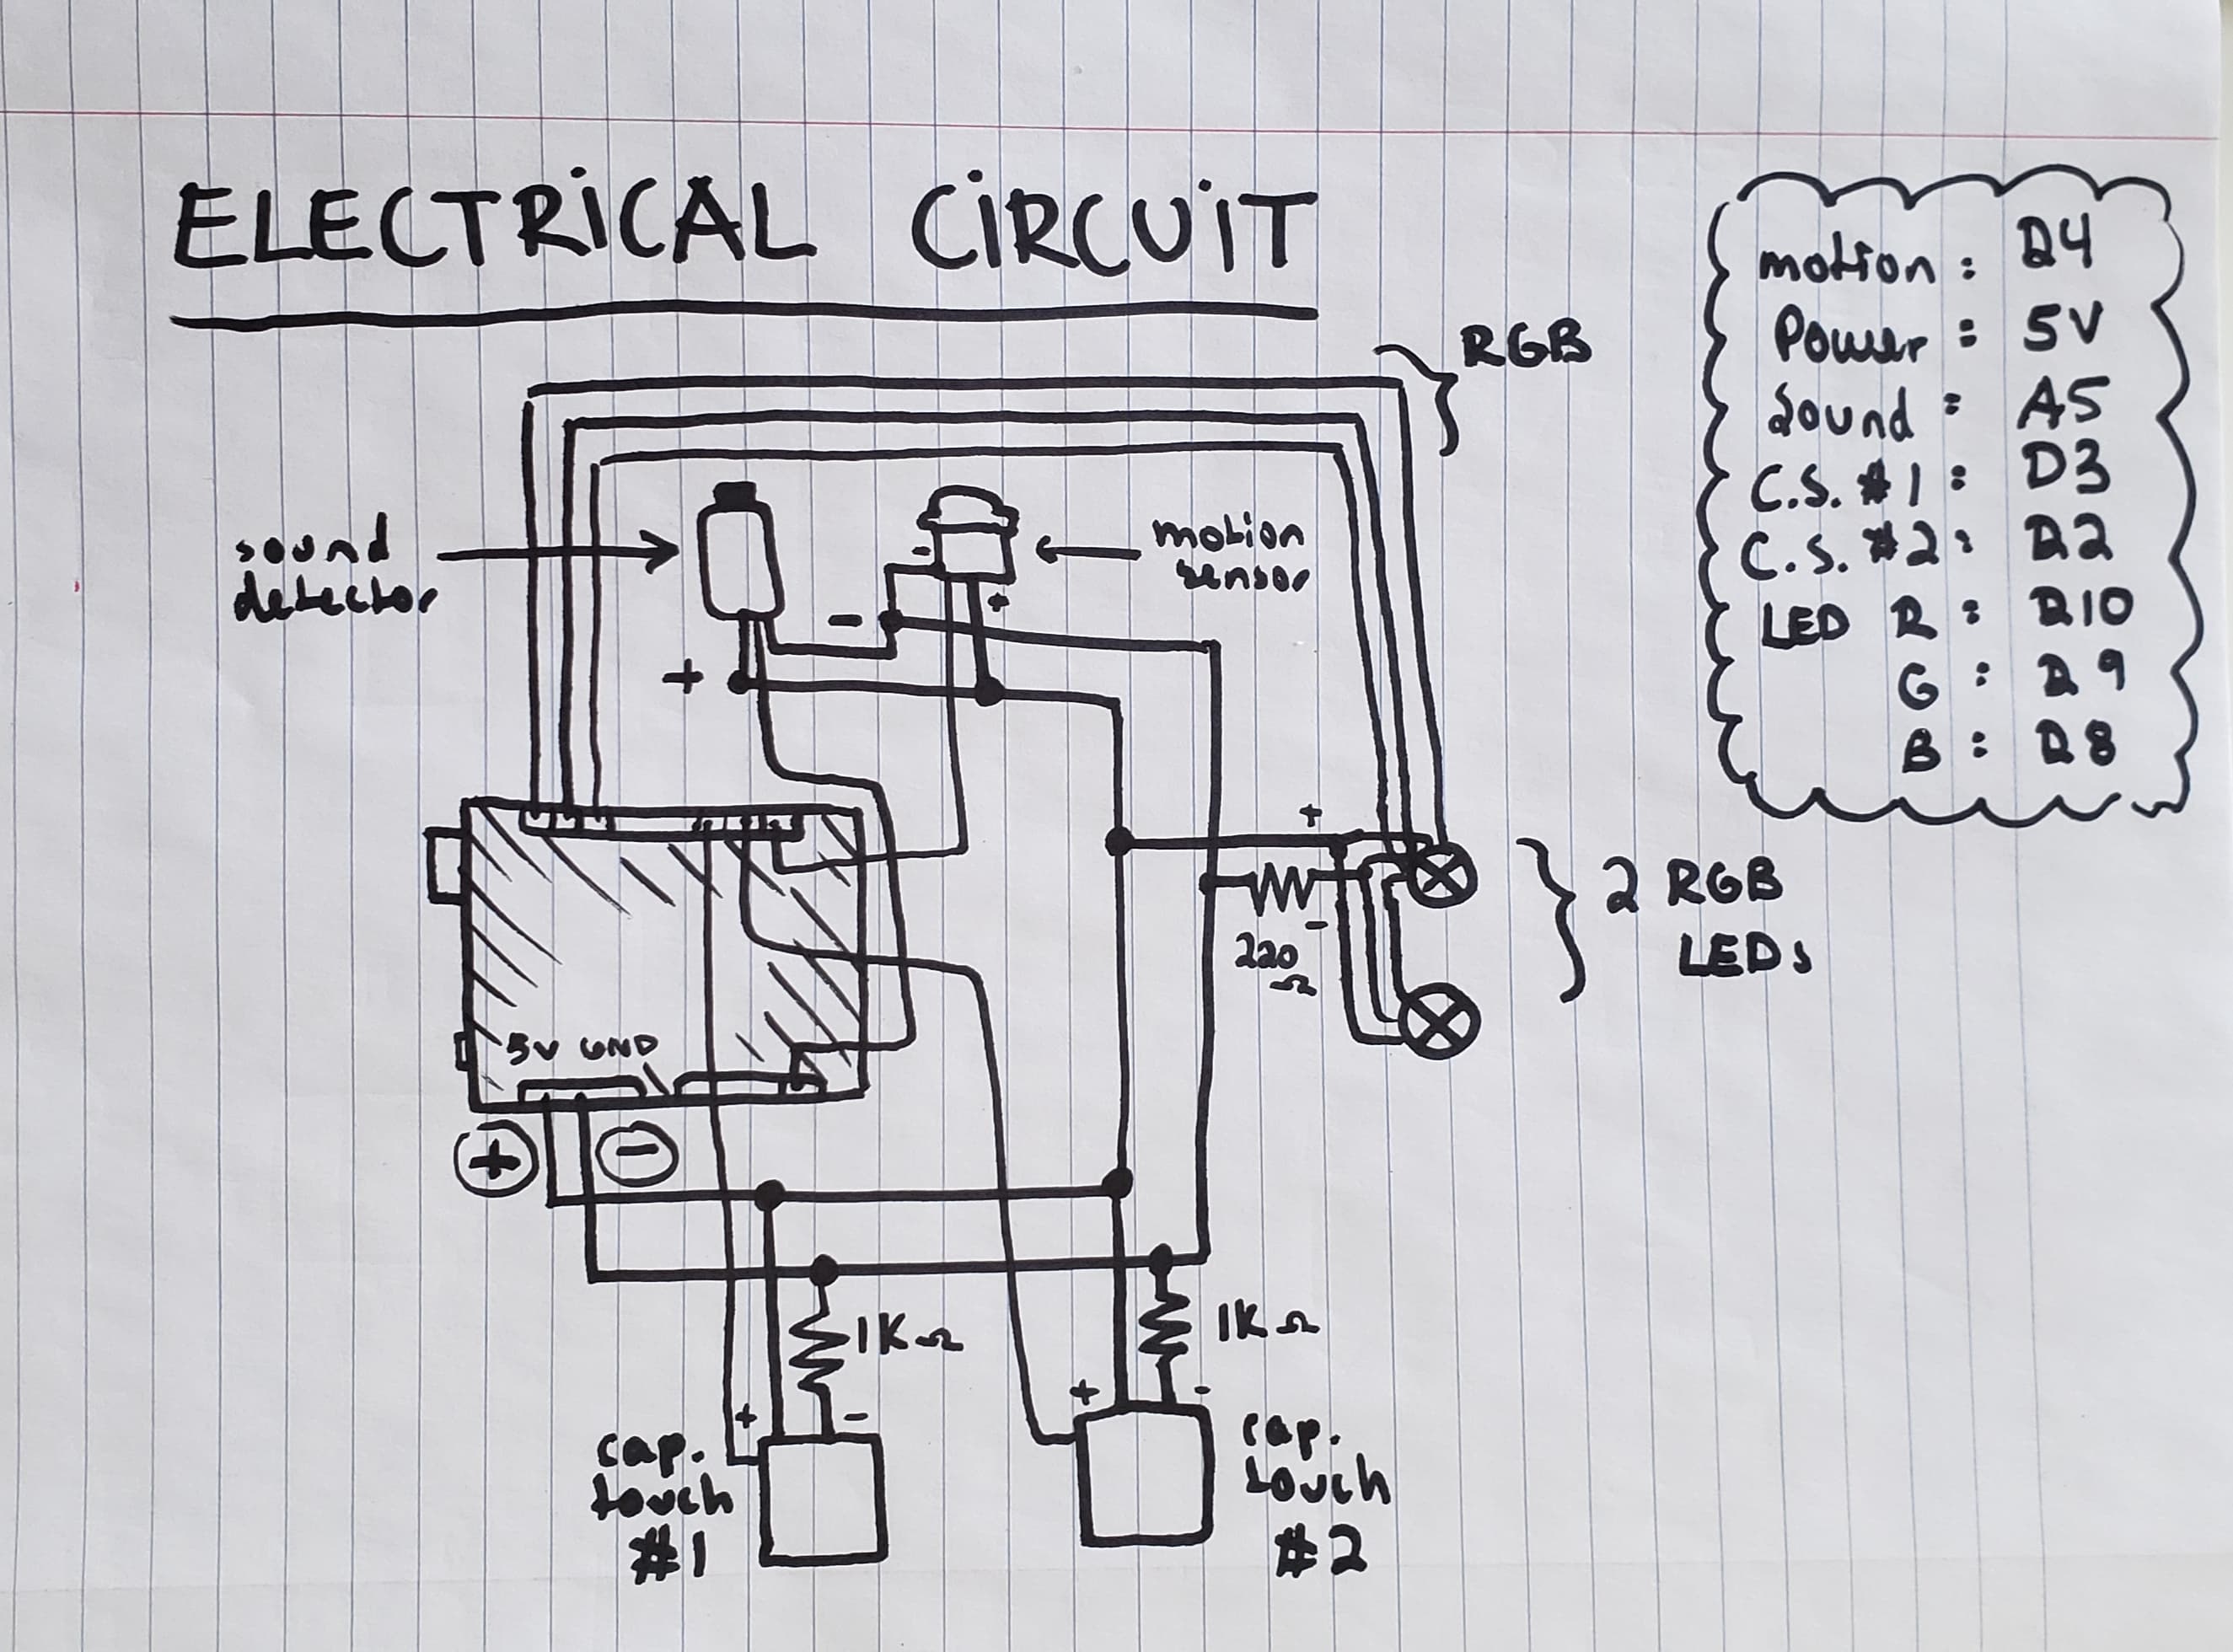 ELECTRICAL CIRCUIT
RGB
motion : D4
Power : 5V
Sound : A5
C.S. #1 : D3
C.S. #2 : D2
LED R : D10
G : D9
B : D8
sound
detector
motion
sensor
-
+
-
+
+
-
220
Ω
2 RGB
LEDs
5V GND
+
-
1KΩ
1KΩ
+
-
+
-
cap.
touch
#1
cap.
touch
#2